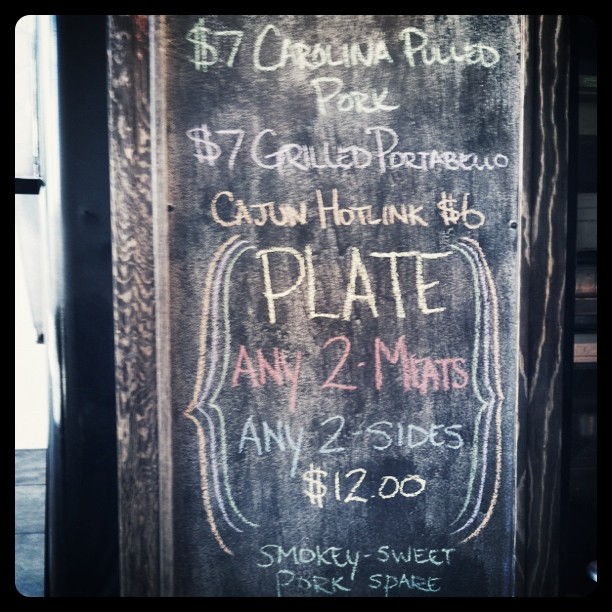 $7 CAROLINA PULLED
PORK
$7 GRILLED PORTABELLO
CAJUN HOTLINK $6
PLATE
ANY 2-MEATS
ANY 2-SIDES
$12.00
SMOKEY-SWEET
PORK SPARE